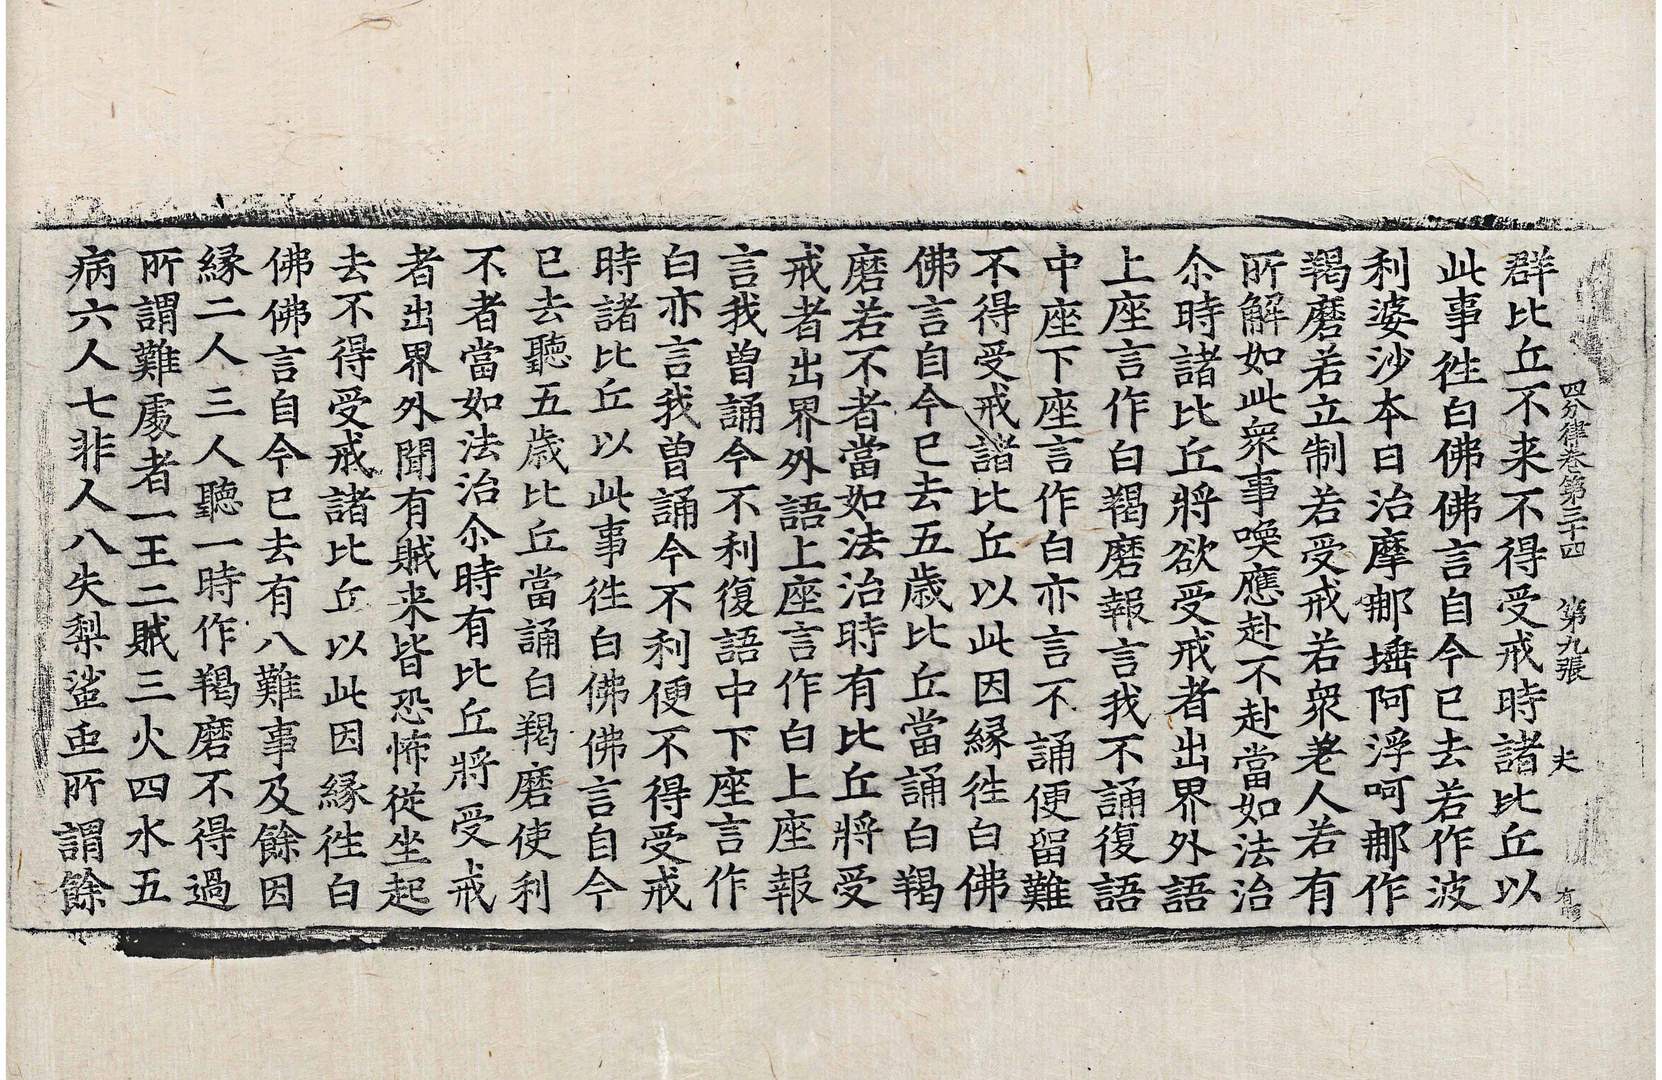 四分律卷第三十四 第九張 夫
群比丘不来不得受戒時諸比丘以
此事徃白佛佛言自今已去若作波
利婆沙本日治摩那埵阿浮呵那作
羯磨若立制若受戒若衆老人若有
所解如此衆事喚應赴不赴當如法治
尒時諸比丘將欲受戒者出界外語
上座言作白羯磨報言我不誦復語
中座下座言作白亦言不誦便留難
不得受戒諸比丘以此因緣徃白佛
佛言自今已去五歲比丘當誦白羯
磨若不者當如法治時有比丘將受
戒者出界外語上座言作白上座報
言我曾誦今不利復語中下座言作
白亦言我曾誦今不利便不得受戒
時諸比丘以此事徃白佛佛言自今
已去聽五歲比丘當誦白羯磨使利
不者當如法治尒時有比丘將受戒
者出界外聞有賊来皆恐怖從坐起
去不得受戒諸比丘以此因緣徃白
佛佛言自今已去有八難事及餘因
緣二人三人聽一時作羯磨不得過
所謂難處者一王二賊三火四水五
病六人七非人八失梨䖢䖝所謂餘